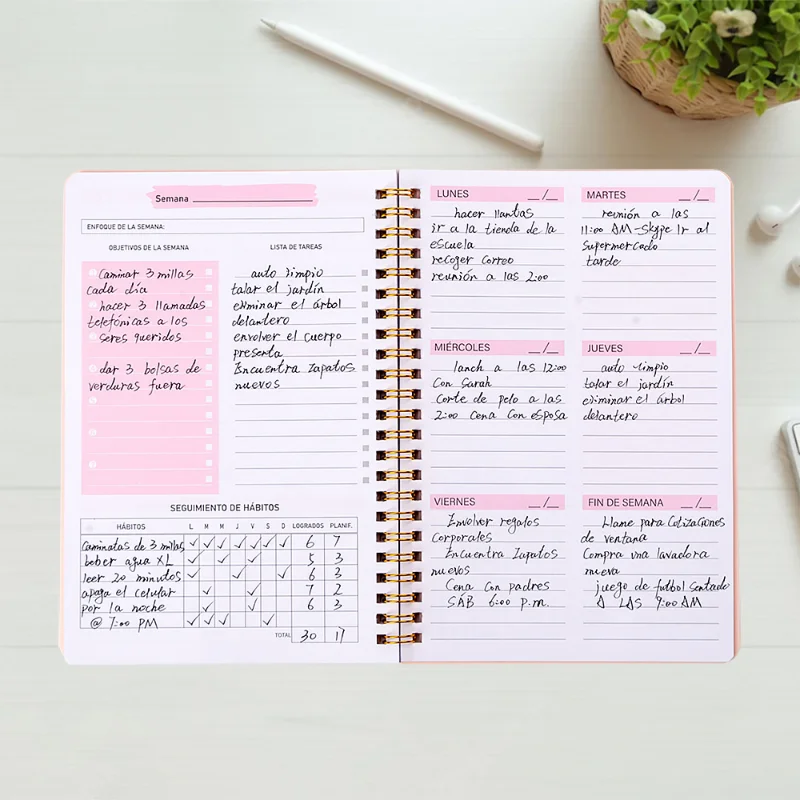 Semana
ENFOQUE DE LA SEMANA:
OBJETIVOS DE LA SEMANA
Caminar 3 millas
cada día
hacer 3 llamadas
telefónicas a los
seres queridos
dar 3 bolsas de
verduras fuera
LISTA DE TAREAS
auto limpio
talar el jardín
eliminar el árbol
delantero
envolver el cuerpo
presenta
Encuentra zapatos
nuevos
SEGUIMIENTO DE HÁBITOS
HÁBITOS L M M J V S D LOGRADOS PLANIF.
Caminatas de 3 millas 6 7
beber agua XL 5 3
leer 20 minutos 6 3
apaga el celular 7 2
por la noche 6 3
@ 7:00 PM
TOTAL 30 17
LUNES __/__
hacer llantas
ir a la tienda de la
escuela
recoger correo
reunión a las 2:00
MARTES __/__
reunión a las
11:00 AM-Skype Ir al
supermercado
tarde
MIÉRCOLES __/__
lanch a las 12:00
con Sarah
Corte de pelo a las
2:00 Cena Con esposa
JUEVES __/__
auto limpio
talar el jardín
eliminar el árbol
delantero
VIERNES __/__
Envolver regalos
corporales
Encuentra zapatos
nuevos
Cena Con padres
SAB 6:00 p.m.
FIN DE SEMANA __/__
Llame para Cotizaciones
de ventana
Compra una lavadora
nueva
juego de futbol sentado
A LAS 9:00 AM